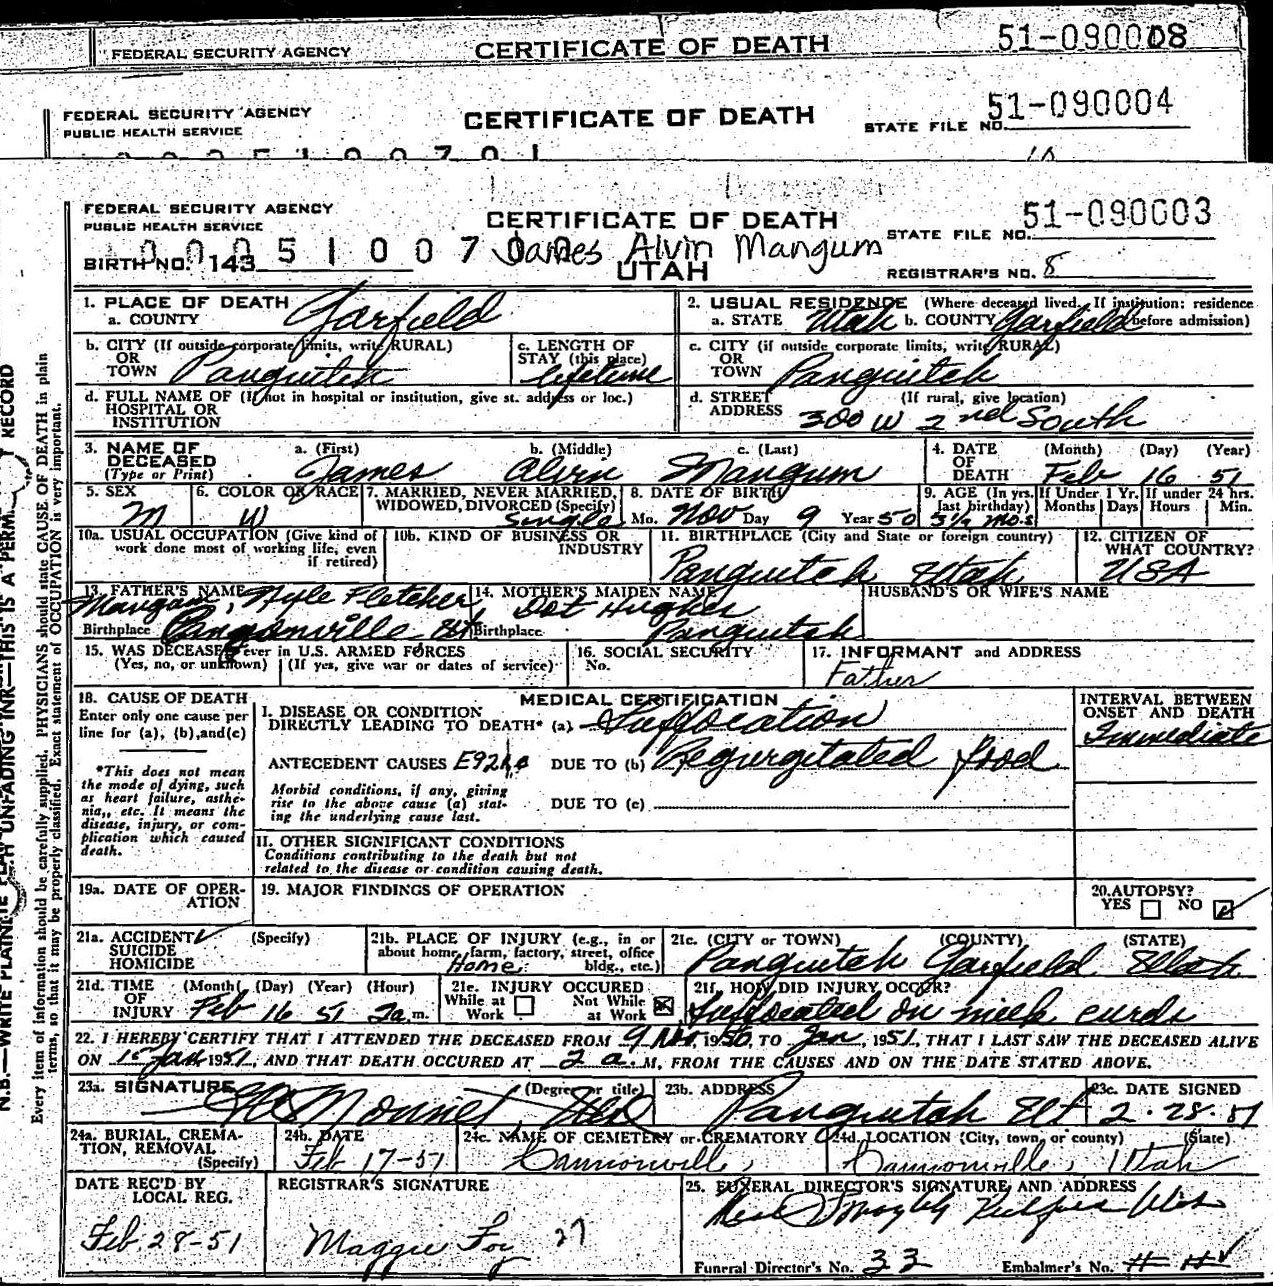 FEDERAL SECURITY AGENCY CERTIFICATE OF DEATH 51-090008
FEDERAL SECURITY AGENCY CERTIFICATE OF DEATH 51-090004
PUBLIC HEALTH SERVICE STATE FILE NO.
FEDERAL SECURITY AGENCY CERTIFICATE OF DEATH 51-090003
PUBLIC HEALTH SERVICE James Alvin Mangum STATE FILE NO.
BIRTH NO. 143 UTAH REGISTRAR'S NO. 8
1. PLACE OF DEATH Garfield 2. USUAL RESIDENCE (Where deceased lived. If institution: residence
a. COUNTY a. STATE Utah b. COUNTY Garfield before admission)
b. CITY (If outside corporate limits, write RURAL) c. LENGTH OF c. CITY (if outside corporate limits, write RURAL)
OR STAY (this place) OR
TOWN Panguitch lifetime TOWN Panguitch
d. FULL NAME OF (If not in hospital or institution, give st. address or loc.) d. STREET (If rural, give location)
HOSPITAL OR ADDRESS 300 W 2nd South
INSTITUTION
3. NAME OF a. (First) b. (Middle) c. (Last) 4. DATE (Month) (Day) (Year)
DECEASED OF
(Type or Print) James Alvin Mangum DEATH Feb 16 51
5. SEX 6. COLOR OR RACE 7. MARRIED, NEVER MARRIED, 8. DATE OF BIRTH 9. AGE (In yrs. If Under 1 Yr. If under 24 hrs.
WIDOWED, DIVORCED (Specify) last birthday) Months Days Hours Min.
M W Single Mo. Nov Day 9 Year 50 3 1/2 mos
10a. USUAL OCCUPATION (Give kind of 10b. KIND OF BUSINESS OR 11. BIRTHPLACE (City and State or foreign country) 12. CITIZEN OF
work done most of working life, even INDUSTRY WHAT COUNTRY?
if retired) Panguitch Utah USA
13. FATHER'S NAME 14. MOTHER'S MAIDEN NAME HUSBAND'S OR WIFE'S NAME
Mangum, Kyle Fletcher Dot Hughes
Birthplace Cannonville Ut Birthplace Panguitch
15. WAS DECEASED ever in U.S. ARMED FORCES 16. SOCIAL SECURITY 17. INFORMANT and ADDRESS
(Yes, no, or unknown) (If yes, give war or dates of service) No. Father
18. CAUSE OF DEATH MEDICAL CERTIFICATION INTERVAL BETWEEN
Enter only one cause per I. DISEASE OR CONDITION ONSET AND DEATH
line for (a), (b), and (c) DIRECTLY LEADING TO DEATH* (a) Suffocation Immediate
*This does not mean ANTECEDENT CAUSES E921.0 DUE TO (b) Regurgitated food
the mode of dying, such Morbid conditions, if any, giving
as heart failure, asthe- rise to the above cause (a) stat- DUE TO (c)
nia, etc. It means the ing the underlying cause last.
disease, injury, or com-
plication which caused II. OTHER SIGNIFICANT CONDITIONS
death. Conditions contributing to the death but not
related to the disease or condition causing death.
19a. DATE OF OPER- 19. MAJOR FINDINGS OF OPERATION 20. AUTOPSY?
ATION YES NO
21a. ACCIDENT (Specify) 21b. PLACE OF INJURY (e.g., in or 21c. (CITY or TOWN) (COUNTY) (STATE)
SUICIDE about home, farm, factory, street, office
HOMICIDE Home bldg., etc.) Panguitch Garfield Utah
21d. TIME (Month) (Day) (Year) (Hour) 21e. INJURY OCCURED 21f. HOW DID INJURY OCCUR?
OF While at Not While
INJURY Feb 16 51 2 a.m. Work at Work Suffocated on milk curds
22. I HEREBY CERTIFY THAT I ATTENDED THE DECEASED FROM 9 Nov, 1950, TO Jan, 1951, THAT I LAST SAW THE DECEASED ALIVE
ON 15 Jan 1951, AND THAT DEATH OCCURED AT 2 a M, FROM THE CAUSES AND ON THE DATE STATED ABOVE.
23a. SIGNATURE (Degree or title) 23b. ADDRESS 23c. DATE SIGNED
Panguitch Ut 2-28-51
24a. BURIAL, CREMA- 24b. DATE 24c. NAME OF CEMETERY or CREMATORY 24d. LOCATION (City, town, or county) (State)
TION, REMOVAL
(Specify) Feb 17-51 Cannonville, Cannonville, Utah
DATE REC'D BY REGISTRAR'S SIGNATURE 25. FUNERAL DIRECTOR'S SIGNATURE AND ADDRESS
LOCAL REG.
Feb. 28-51 Maggie Foy 27
Funeral Director's No. 33 Embalmer's No.
N.B.—WRITE PLAINLY
UNFADING INK—THIS IS A PERM
RECORD
Every item of information should be carefully supplied. PHYSICIANS should state CAUSE OF DEATH in plain
terms, so that it may be properly classified. Exact statement of OCCUPATION is very important.